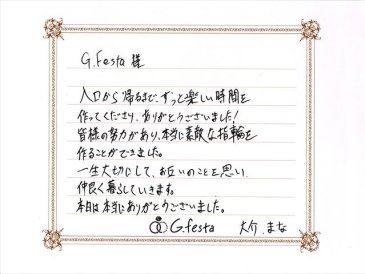 G.festa 様
入口から帰るまで、ずっと楽しい時間を
作ってくださり、ありがとうございました!
皆様の努力があり、本当に素敵な指輪を
作ることができました。
一生大切にして、お互いのことを思い、
仲良く暮らしていきます。
本日は本当にありがとうございました。
G.festa 大介.まな